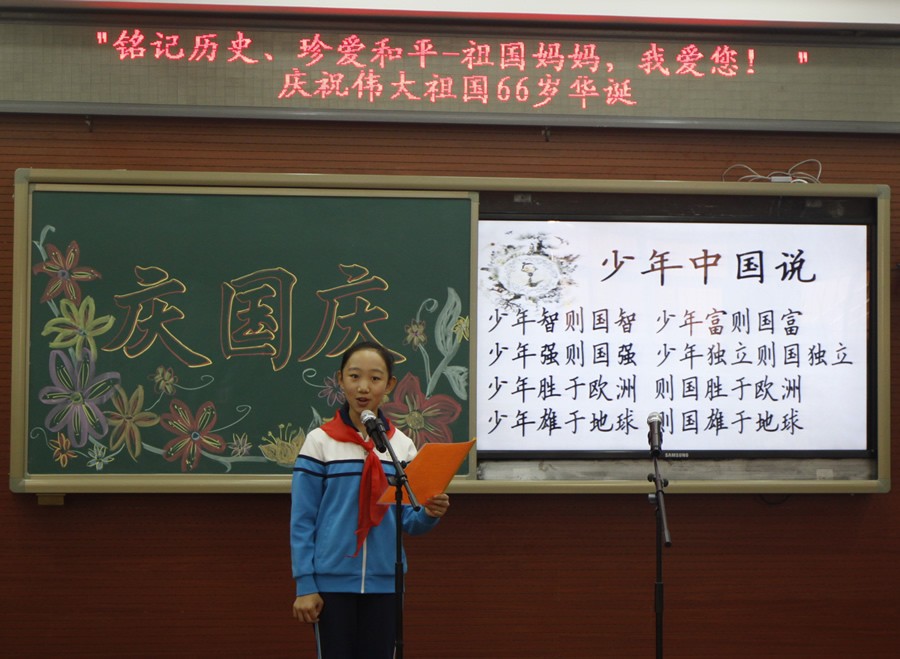 "铭记历史、珍爱和平-祖国妈妈，我爱您！"
庆祝伟大祖国66岁华诞
庆国庆
少年中国说
少年智则国智 少年富则国富
少年强则国强 少年独立则国独立
少年胜于欧洲 则国胜于欧洲
少年雄于地球 则国雄于地球
SAMSUNG